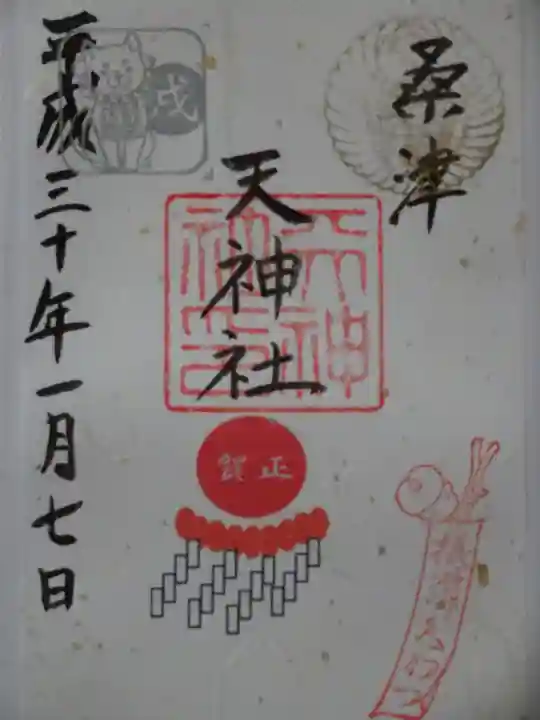 桑津
天神社
平成三十年一月七日
戌
賀正